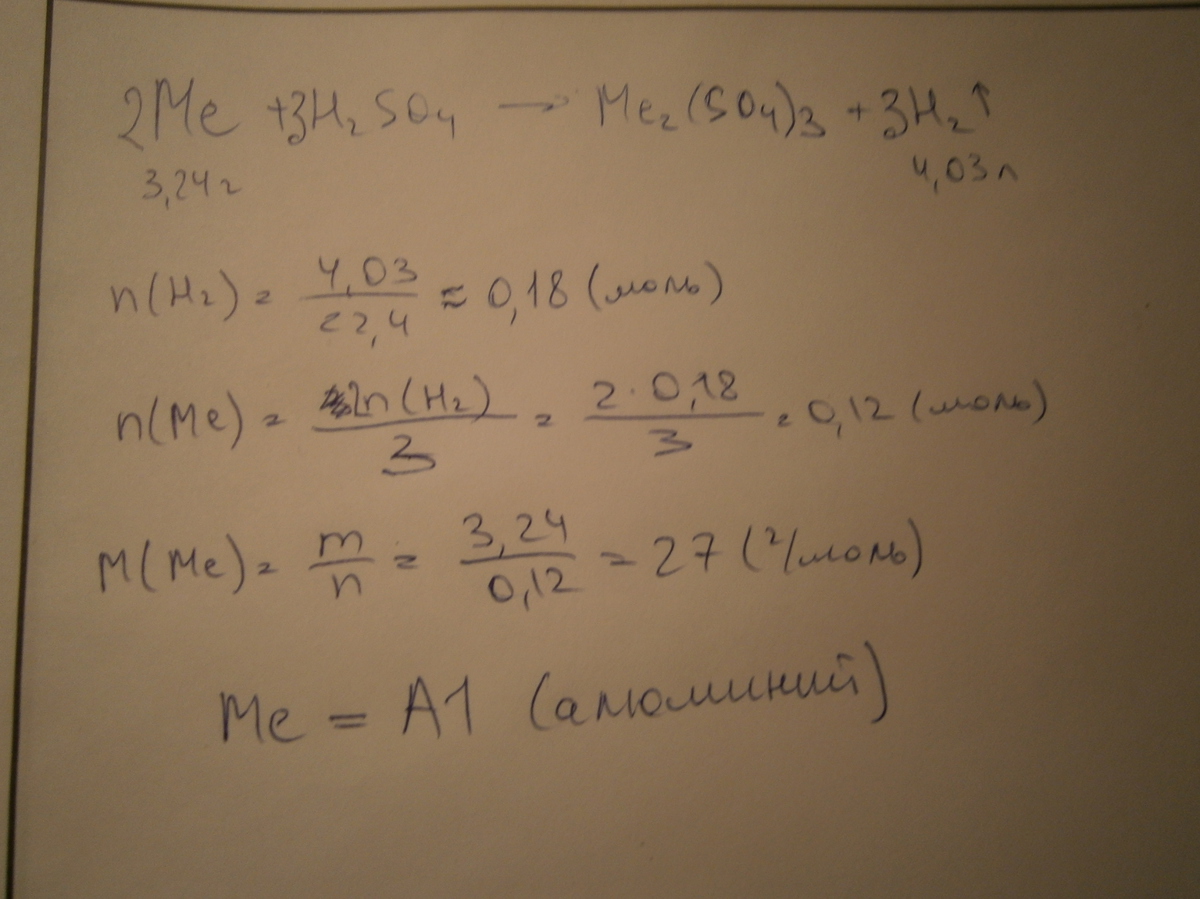 2Me + 3H₂SO₄ → Me₂(SO₄)₃ + 3H₂↑
3,24 г 4,03 л
n(H₂) = 4,03/22,4 ≈ 0,18 (моль)
n(Me) = 2n(H₂)/3 = 2·0,18/3 = 0,12 (моль)
M(Me) = m/n = 3,24/0,12 = 27 (г/моль)
Me = Al (алюминий)